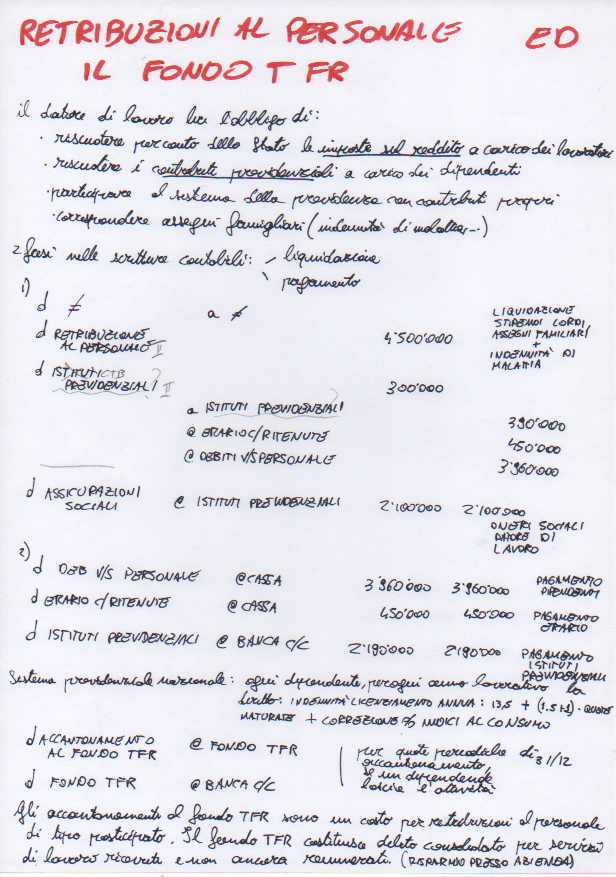 RETRIBUZIONI AL PERSONALE ED
IL FONDO TFR
il datore di lavoro ha l'obbligo di:
· riscuotere per conto dello Stato le imposte sul reddito a carico dei lavoratori
· riscuotere i contributi previdenziali a carico dei dipendenti
· partecipare al sistema della previdenza con contributi propri
· corrispondere assegni famigliari (indennità di malattia...)
2 fasi nelle scritture contabili: liquidazione
pagamento
1)
d ≠ a ≠ LIQUIDAZIONE
STIPENDI LORDI
d RETRIBUZIONE 4'500'000 ASSEGNI FAMILIARI
AL PERSONALE II +
INDENNITÀ DI
MALATTIA
d ISTITUTI CTB
PREVIDENZIALI? II 300'000
a ISTITUTI PREVIDENZIALI 390'000
@ ERARIO C/RITENUTE 450'000
@ DEBITI V/S PERSONALE 3'960'000
d ASSICURAZIONI @ ISTITUTI PREVIDENZIALI 2'100'000 2'100'000
SOCIALI ONERI SOCIALI
DATORE DI
LAVORO
2)
d DEB V/S PERSONALE @ CASSA 3'960'000 3'960'000 PAGAMENTO
DIPENDENTI
d ERARIO C/RITENUTE @ CASSA 450'000 450'000 PAGAMENTO
ERARIO
d ISTITUTI PREVIDENZIALI @ BANCA C/C 2'190'000 2'190'000 PAGAMENTO
ISTITUTI
PREVIDENZIALI
Sistema previdenziale nazionale: ogni dipendente, per ogni anno lavorativo ha
diritto: INDENNITÀ LICENZIAMENTO ANNUA: 13,5 + (1.5 ) · QUOTE
MATURATE + CORREZIONE % INDICI AL CONSUMO
d ACCANTONAMENTO @ FONDO TFR per quote periodiche di 31/12
AL FONDO TFR accantonamento,
se un dipendente
d FONDO TFR @ BANCA C/C lascia l'attività
Gli accantonamenti al fondo TFR sono un costo per retribuzioni al personale
di tipo posticipato. Il fondo TFR costituisce debito consolidato per servizi
di lavoro ricevuti e non ancora remunerati. (RISPARMIO PRESSO AZIENDA)